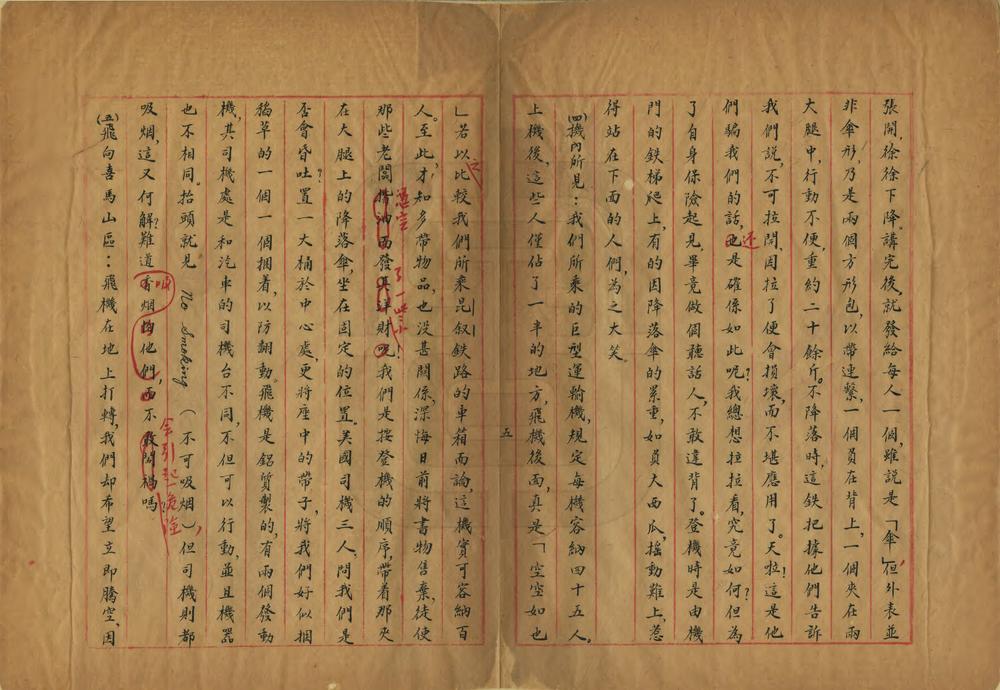 張開，徐徐下降。講完後，就發給每人一個，雖説是「傘」，但外表並
非傘形，乃是兩個方形包，以帶連繫，一個負在背上，一個夾在兩
大腿中，行動不便，重約二十餘斤。不降落時，這鉄把據他們告訴
我們説，不可拉開，因拉了便會損壞，而不堪應用了。天啦！這是他
們騙我們的話，还是確係如此呢？我總想拉拉看，究竟如何？但為
了自身保險起見，畢竟做個聽話人，不敢違背了。登機時是由機
門的鉄梯爬上，有的因降落傘的累重，如負大西瓜，摇動難上，惹
得站在下面的人們，為之大笑。
(四)機內所見：我們所乘的巨型運輸機，規定每機容納四十五人。
上機後，這些人僅佔了一半的地方，飛機後面，真是「空空如也
五
」若以之比較我們所乘昆叙鉄路的車箱而論，這機實可容納百
人。至此，才知多帶物品，也没甚關係，深悔日前將書物售棄，徒使
那些老闆揩油而發其洋財呢！我們是按登機的順序，帶着那夾
憑空
了一些小
在大腿上的降落傘，坐在固定的位置。美國司機三人，問我們是
否會昏吐？置一大桶於中心處，更將座中的帶子，將我們好似捆
稻草的一個一個捆着，以防翻動。飛機是鋁質製的，有兩個發動
機，其司機處是和汽車的司機台不同，不但可以行動，並且機器
也不相同。抬頭就見 No Smoking （不可吸烟），但司機則都
吸烟，這又何解？難道香烟怕他們，而不敢闖禍嗎？
嗎
會引起危險
(五)飛向喜馬山區：飛機在地上打轉，我們却希望立即騰空，因